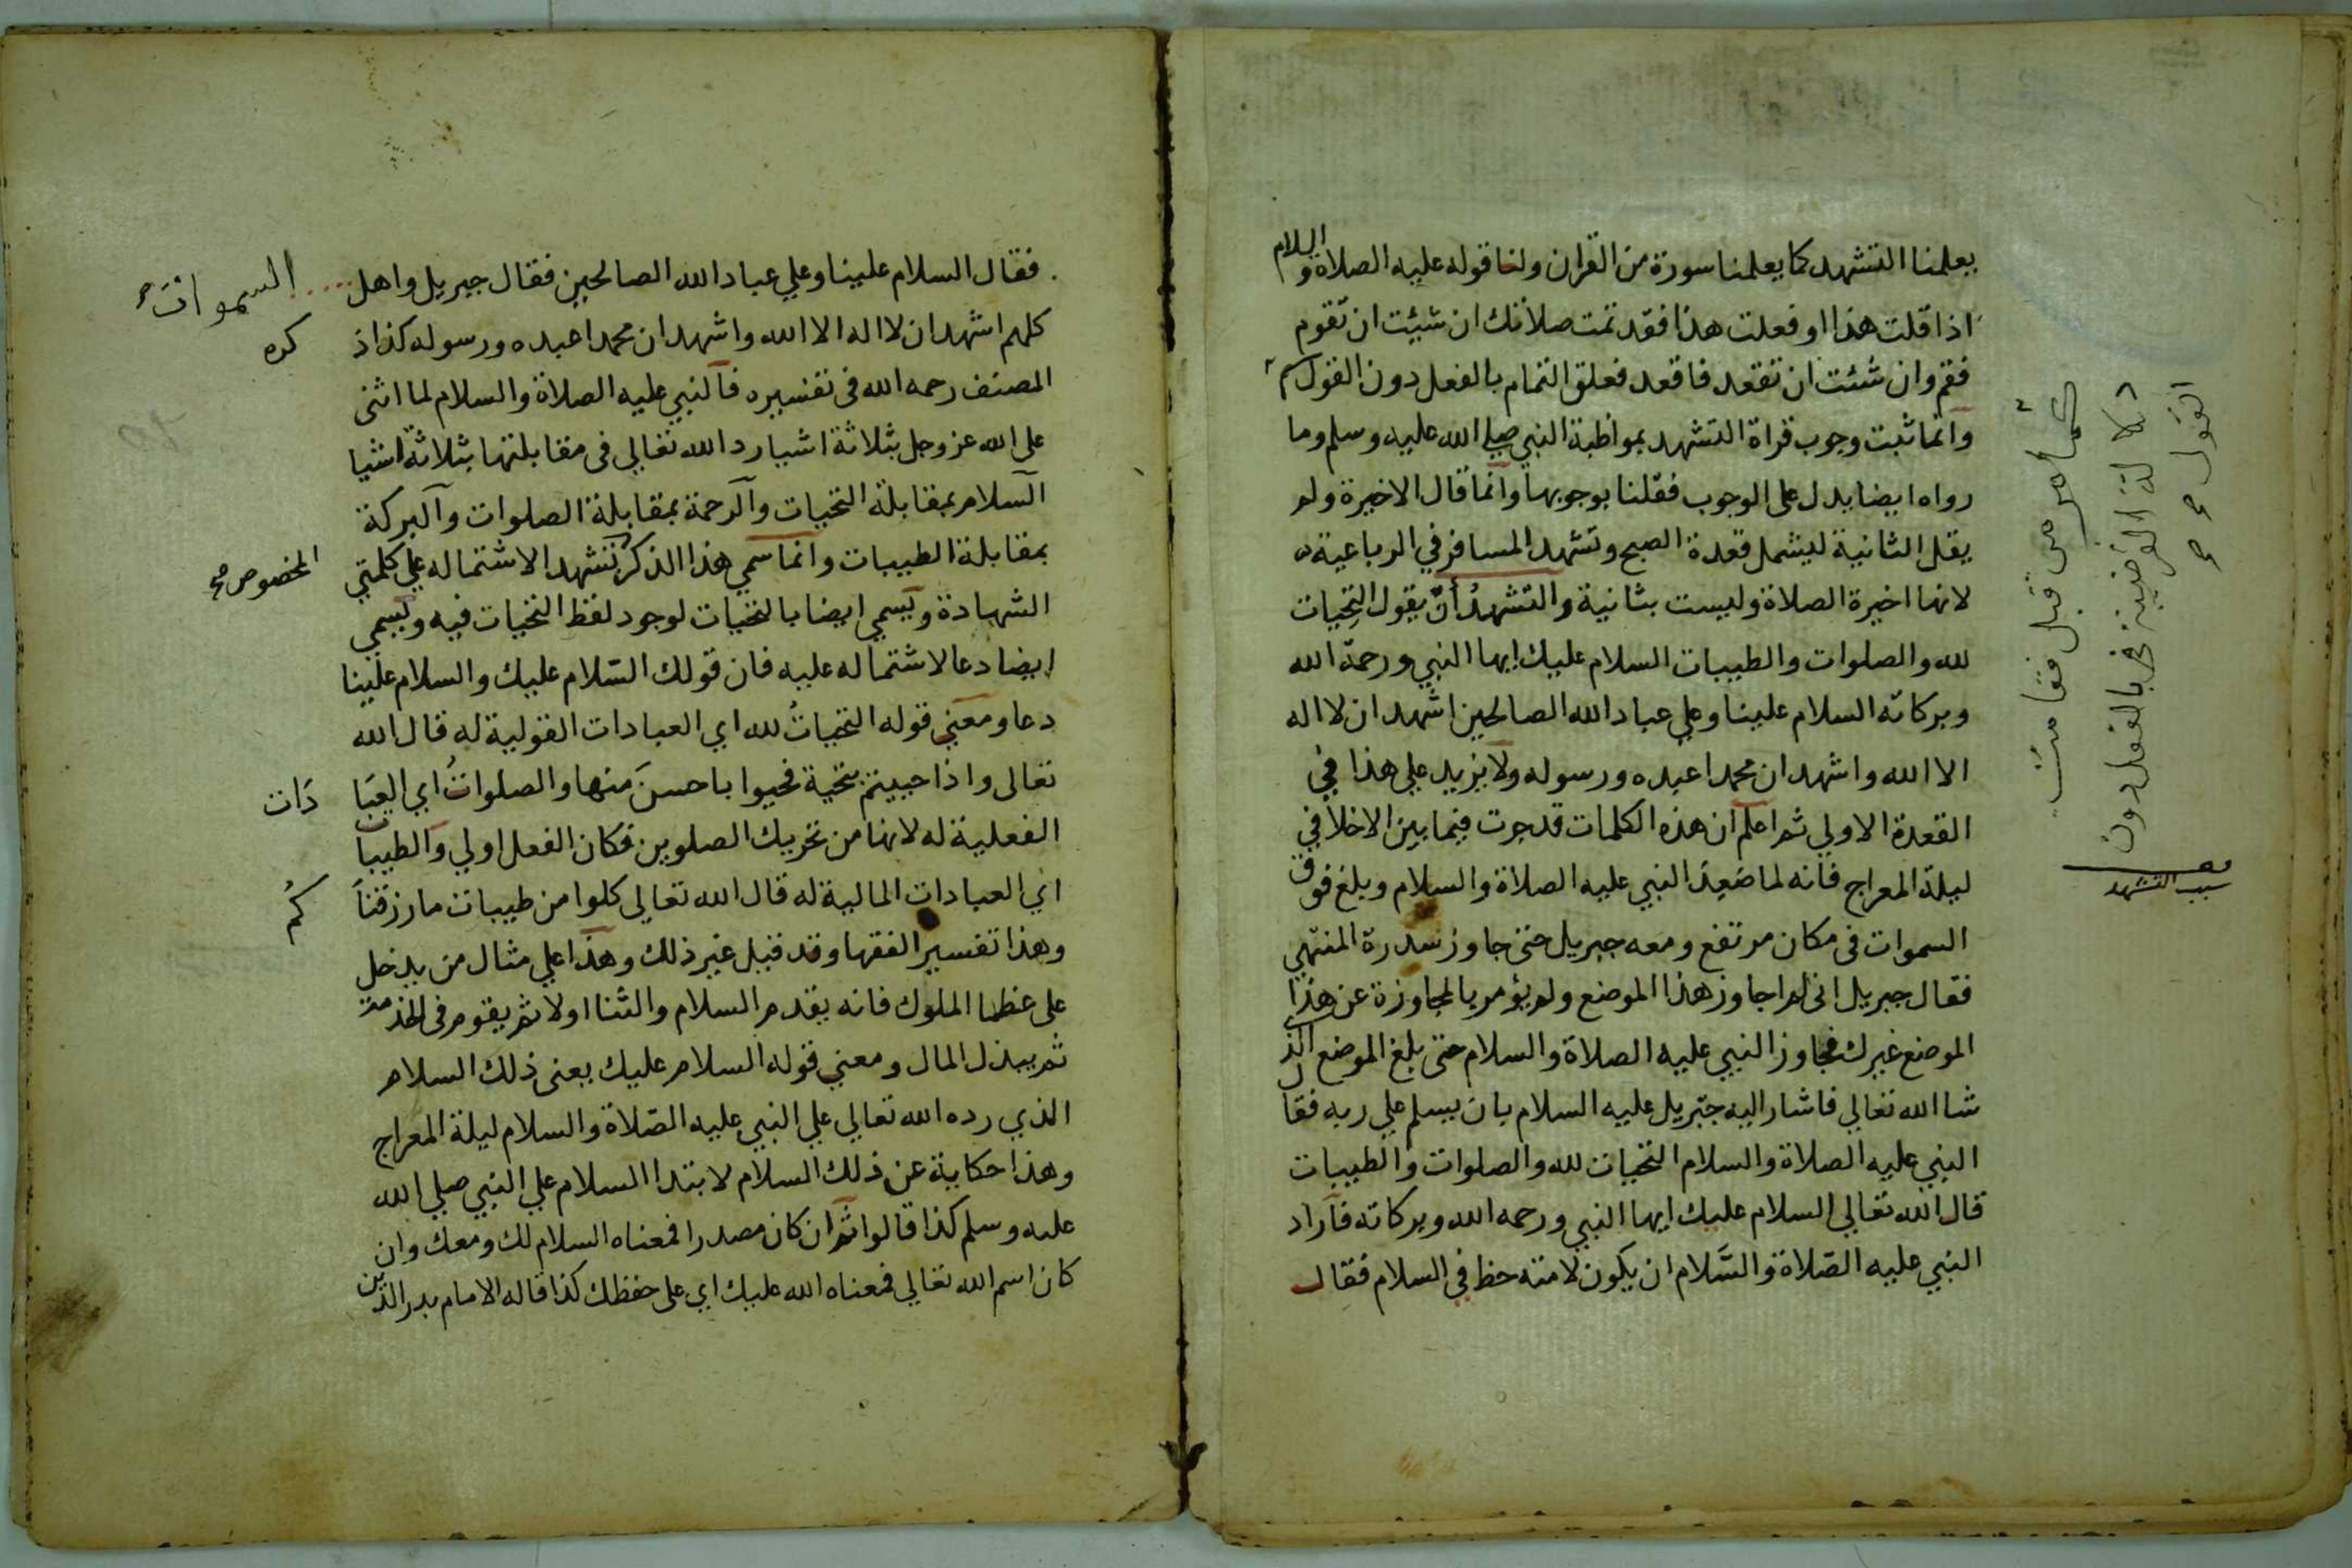 يعلمنا التشهد كما يعلمنا سورة من القران ولنا قوله عليه الصلاة والسلام
اذا قلت هذا او فعلت هذا فقد تمت صلاتك ان شيئت ان تقوم
فقم وان شئت ان تقعد فاقعد فعلق التمام بالفعل دون القول
وانما ثبت وجوب قراة التشهد بمواظبة النبي صلي الله عليه وسلم وما
رواه ايضا يدل على الوجوب فقلنا بوجوبها وانما قال الاخيرة ولم
يقل الثانية ليشمل قعدة الصبح وتشهد المسافر في الرباعية
لانها اخيرة الصلاة وليست بثانية والتشهد أن يقول التحيات
لله والصلوات والطيبات السلام عليك ايها النبي ورحمة الله
وبركاته السلام علينا وعلي عباد الله الصالحين اشهد ان لا اله
الا الله واشهد ان محمدا عبده ورسوله ولا يزيد علي هذا في
القعدة الاولي ثم اعلم ان هذه الكلمات قد جرت فيما بين الاخلا في
ليلة المعراج فانه لما صَعِدَ النبي عليه الصلاة والسلام وبلغ فوق
السموات فى مكان مرتفع ومعه جبريل حتى جاوز سدرة المنتهي
فقال جبريل انى لم اجاوز هذا الموضع ولم يؤمر بالمجاوزة عن هذا
الموضع غيرك فجاوز النبي عليه الصلاة والسلام حتى بلغ الموضع الذي
شا الله تعالي فاشار اليه جبريل عليه السلام بان يسلم علي ربه فقال
النبي عليه الصلاة والسلام التحيات لله والصلوات والطيبات
قال الله تعالي السلام عليك ايها النبي ورحمه الله وبركاته فاراد
النبي عليه الصّلاة والسَّلام ان يكون لامته حظ في السلام فقال
قبل فقامت
دلالته الفرضية بالفعل دون
القول
سبب التشهد
فقال السلام علينا وعلي عباد الله الصالحين فقال جبريل واهل السموات
كلهم اشهد ان لا اله الا الله واشهد ان محمدا عبده ورسوله كذا ذ كره
المصنف رحمه الله فى تفسيره فالنبي عليه الصلاة والسلام لما اثنى
على الله عز وجل بثلاثة اشيا رد الله تعالي فى مقابلتها بثلاثة اشيا
السلام بمقابلة التحيات والرحمة بمقابلة الصلوات والبركة
بمقابلة الطيبات وانما سمي هذا الذكر تشهد الاشتماله علي كلمتي
المخصوص
الشهادة ويسمي ايضا بالتحيات لوجود لفظ التحيات فيه ويسمي
ايضا دعا لاشتماله عليه فان قولك السّلام عليك والسلام علينا
دعا ومعني قوله التحياتُ لله اي العبادات القولية له قال الله
تعالى واذا حييتم بتحية فحيوا باحسنَ منها والصلواتُ اي العبَا دَات
الفعلية له لانها من تحريك الصلوين فكان الفعل اولي والطيبات
اي العبادات المالية له قال الله تعالي كلوا من طيبات ما رزقنا كُم
وهذا تفسير الفقها وقد قيل غير ذلك وهذا علي مثال من يدخل
على عظما الملوك فانه يقدم السلام والثنا اولا ثم يقوم فى الخدمة
ثم يبذل المال ومعني قوله السلام عليك يعنى ذلك السلام
الذي رده الله تعالي علي النبي عليه الصّلاة والسلام ليلة المعراج
وهذا حكاية عن ذلك السلام لابتدا السلام علي النبي صلي الله
عليه وسلم كذا قالوا ثم ان كان مصدرا فمعناه السلام لك ومعك وان
كان اسم الله تعالي فمعناه الله عليك اي على حفظك كذا قاله الامام بدر الدين